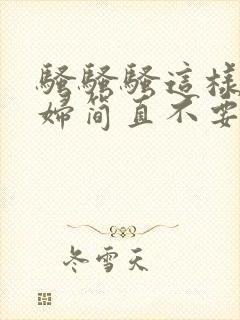 騷騷騷這樣
婦簡直不要
冬雪天